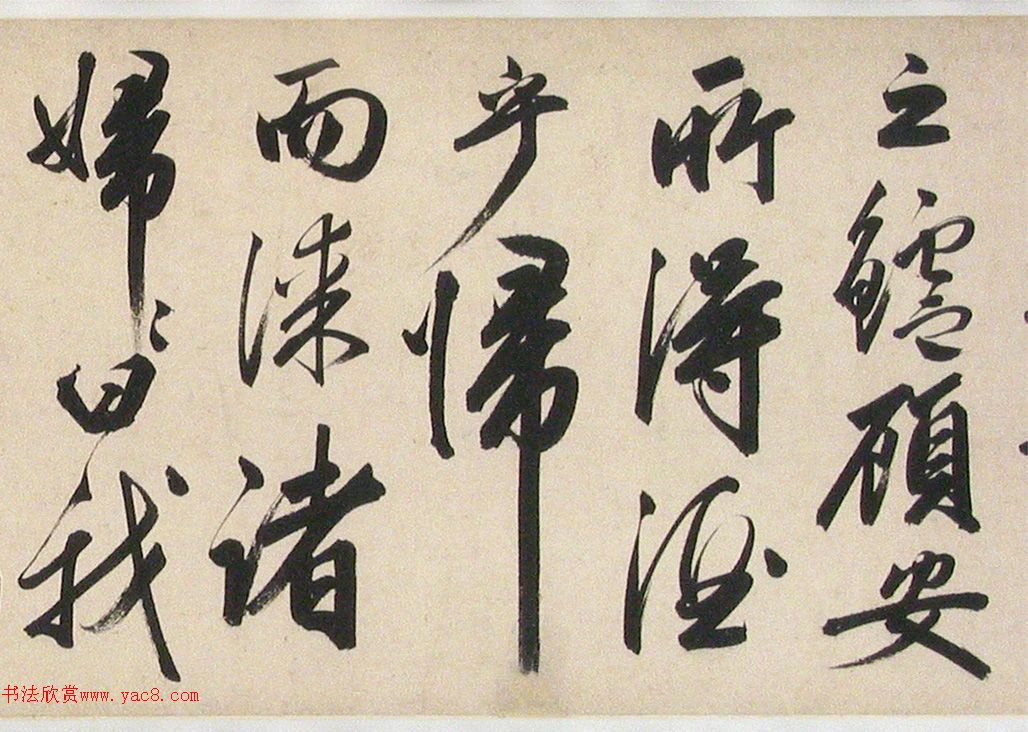 之鱸顧安
所得酒
乎歸
而謀諸
婦〻曰我
书法欣赏www.yac8.com